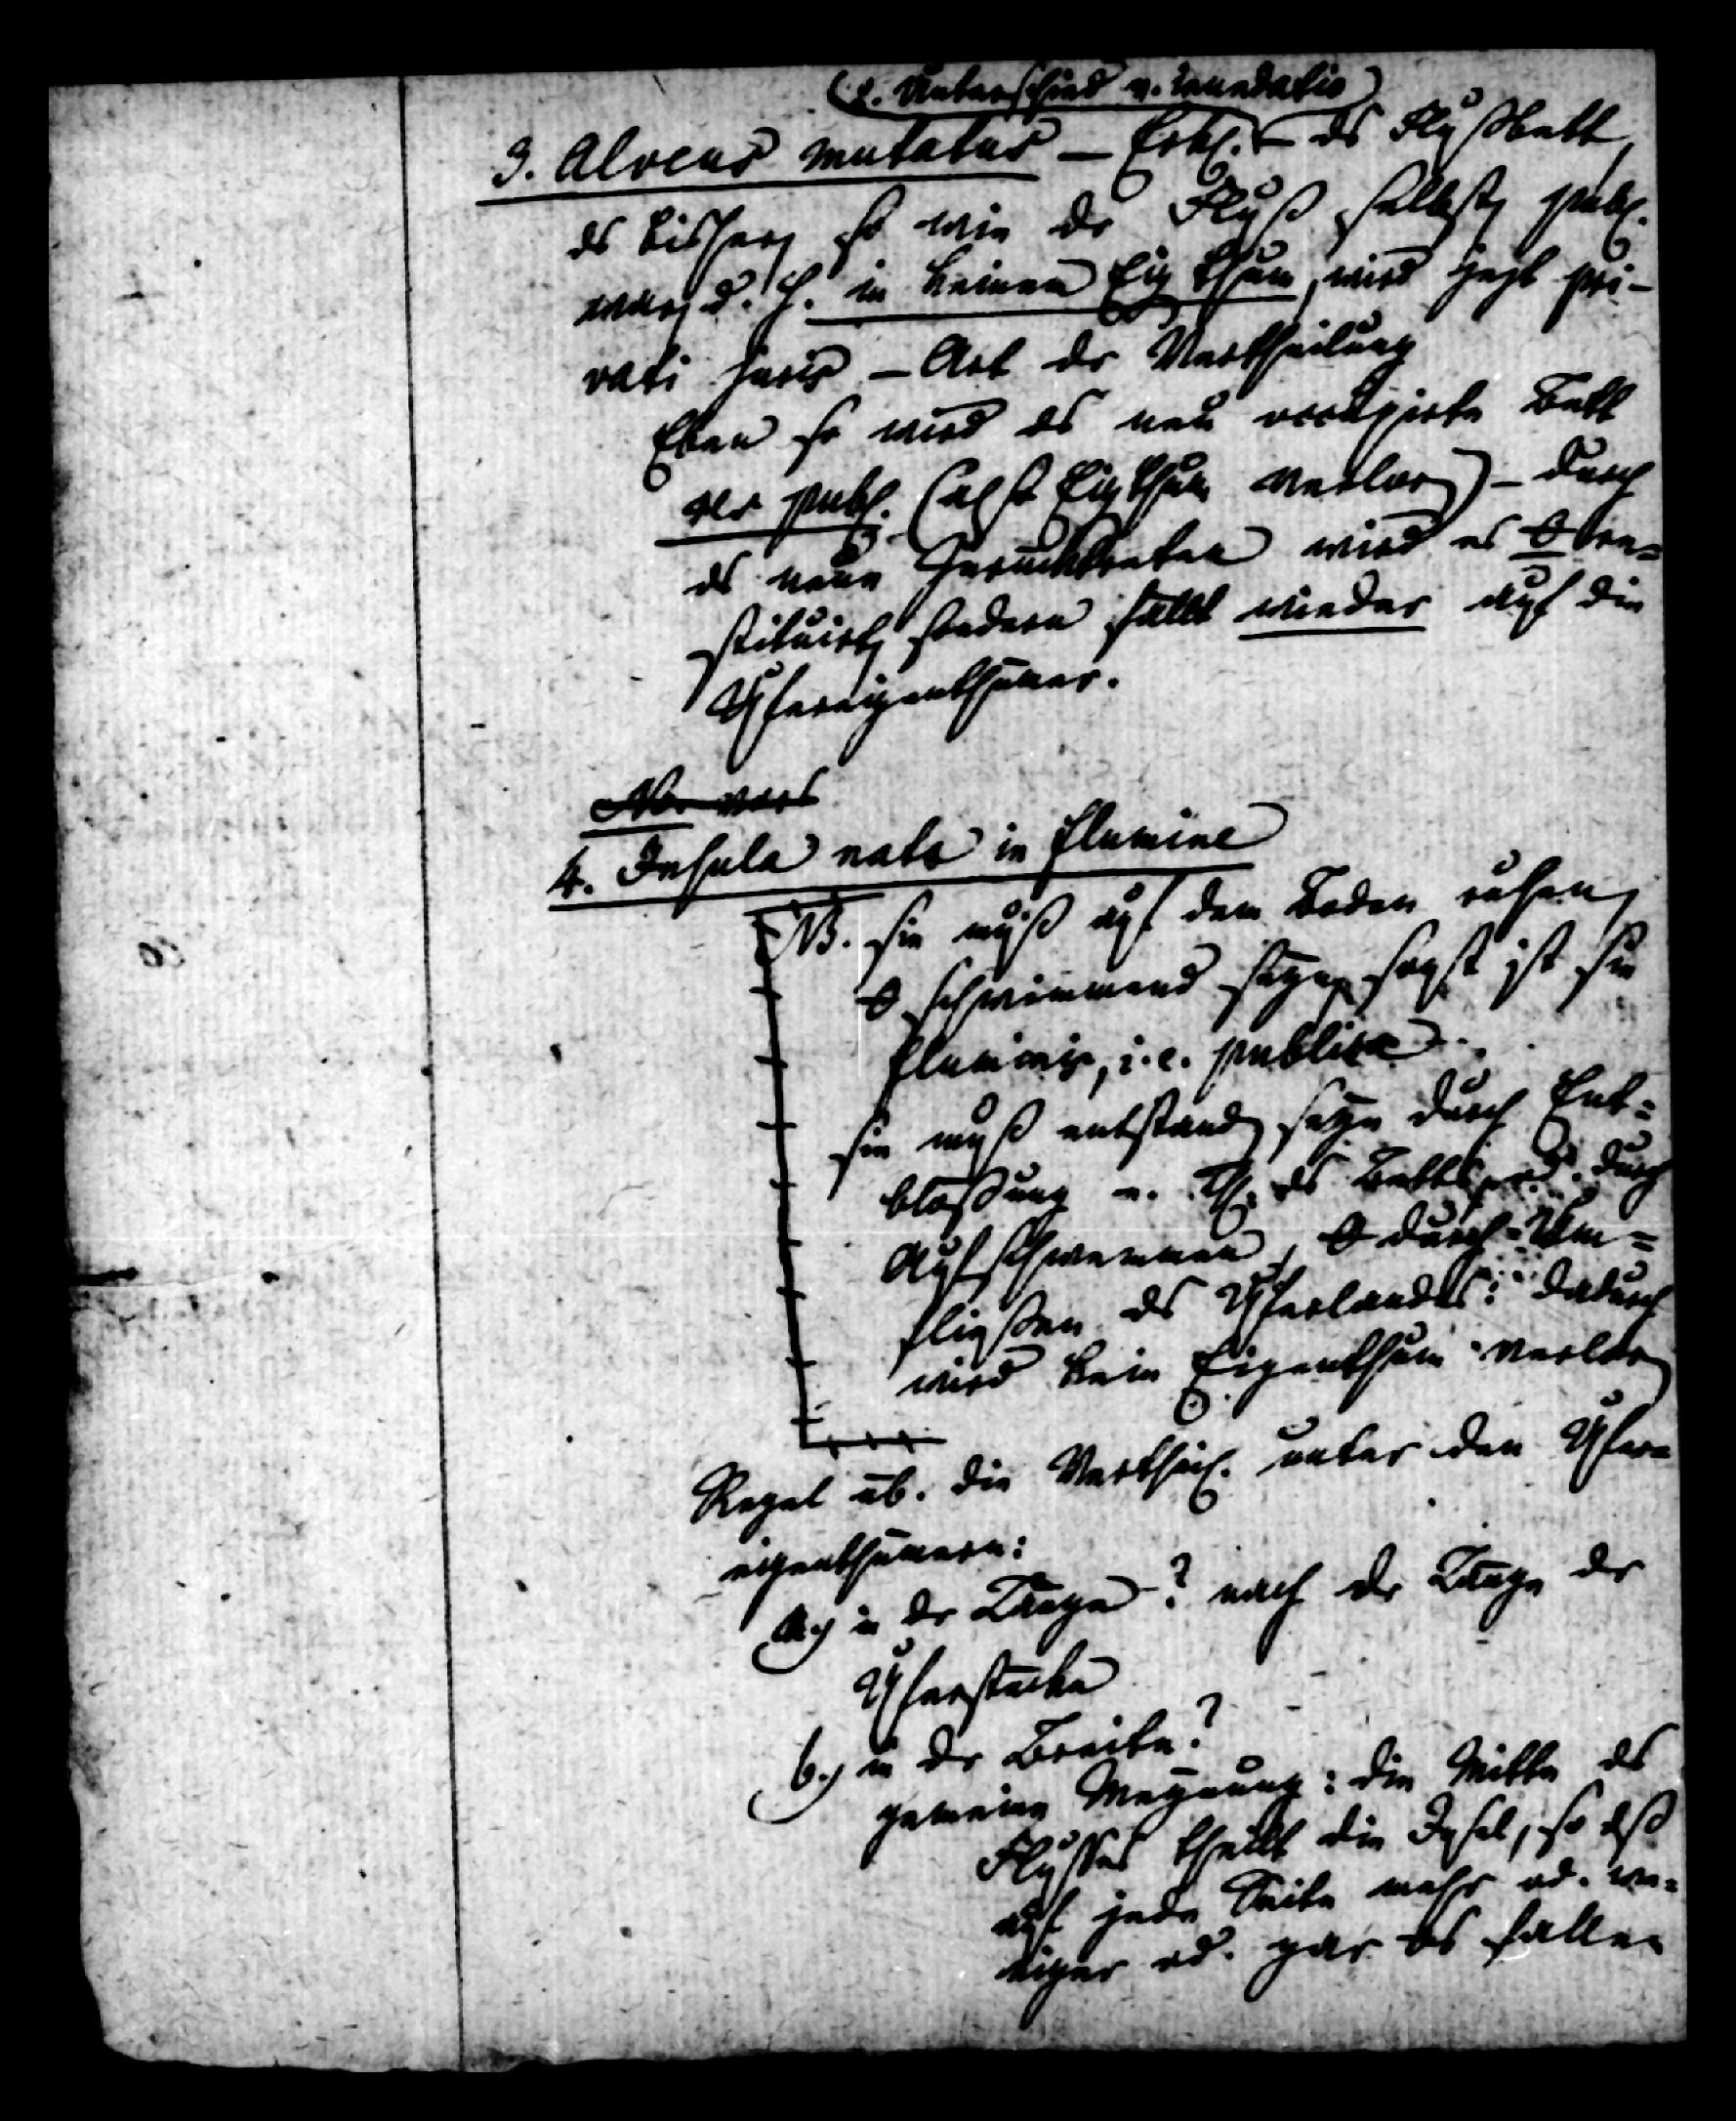 (u. Unterschied v. inundatio)
3. Alveus mutatus – Erkl. – ds Flußbett,
ds bisher, so wie der Fluß selbst, publ.
war, d. h. in keinem Eigthum, wird jezt pri-
vati juris – Art der Vertheilung
Eben so wird ds neu occupirte Bett
res publ. (alst Eigthum verlor) – durch
ds neue Zurücktreten wird es 0 re=
stituirt, sondern fällt wieder auf die
Ufereigenthümer.
4. Insula nata in flumine
NB. sie muß auf dem Boden ruhen,
0 schwimmend seyn, sonst ist sie
fluminis, i. e. publica
sie muß entstand. seyn durch Ent=
blößung e. Th. ds Betts, od. durch
Aufschwemmen, 0 durch Um=
fließen ds Uferlandes: dadurch
wird kein Eigenthum verlor.
Regel üb. die Vertheil. unter den Ufer=
eigenthümern:
a.) in der Länge? nach der Länge der
Uferstücke
b.) in der Breite?
gemeine Meynung: die Mitte des
Flusses theilt die Insel, so dß
auf jede Seite mehr od. we=
niger od. gar 0s fallen